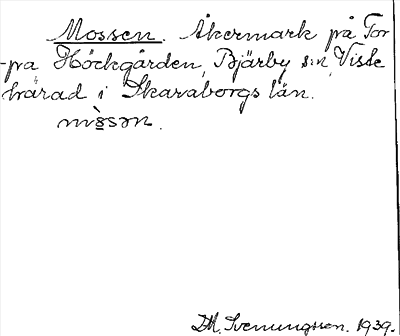 Mossen. Åkermark på Tor-
pa Höckgården, Bjärby s:n, Viste
härad i Skaraborgs län.
mòsən.
M. Svenungsson. 1939.